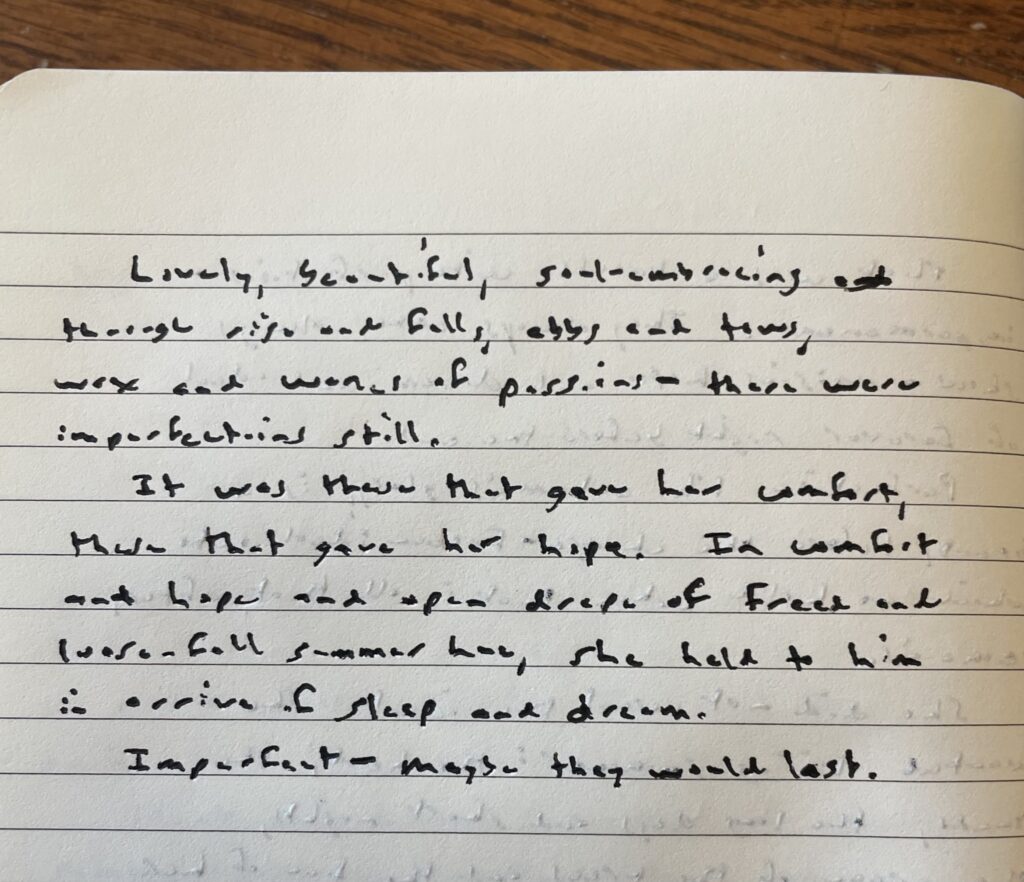 Lovely, beautiful, soul-embracing
through rise and falls, ebbs and tows,
wax and wanes of passions – there were
imperfections still.
It was these that gave her comfort,
these that gave her hope. In comfort
and hope and open drape of freed and
loose-fall summer hue, she held to him
in arrive of sleep and dream.
Imperfect – maybe they would last.